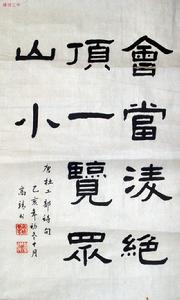 會當凌絕
頂一覽眾
山小
唐杜工部詩句
乙亥年初冬十月